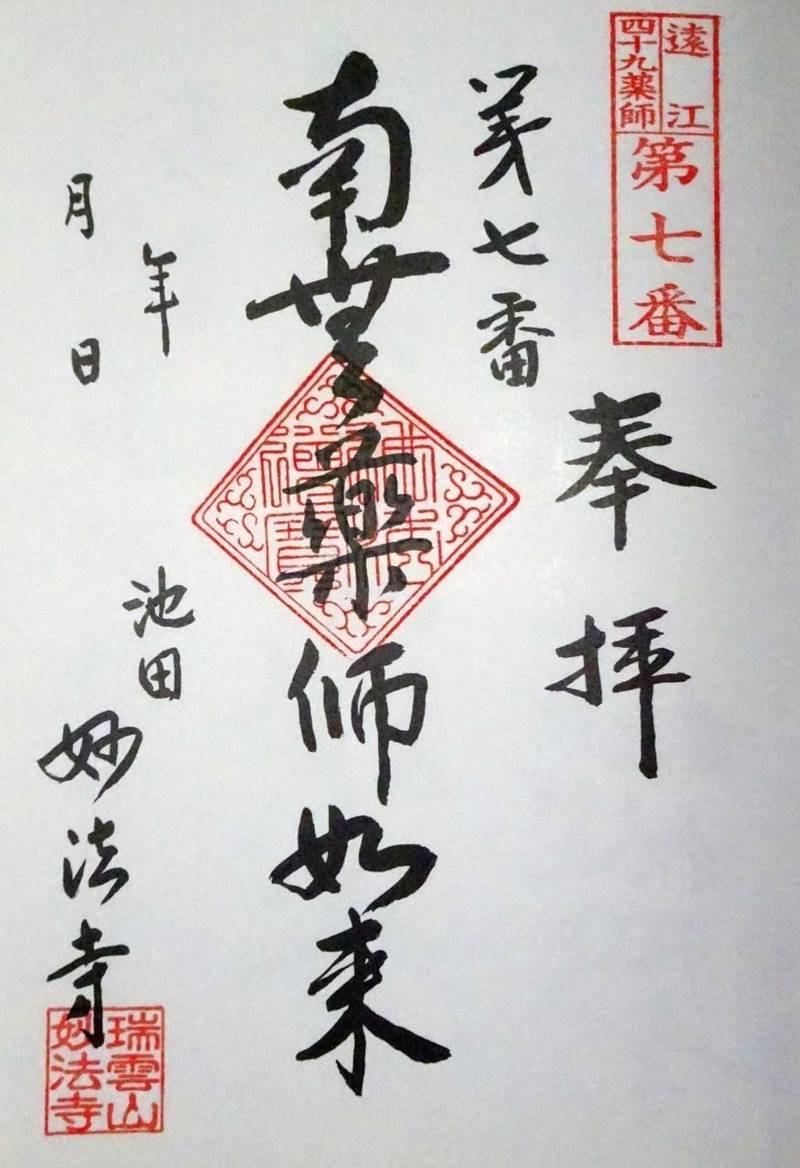 遠江
四十九薬師
第七番
奉拝
第七番
南無薬師如来
年
月日
池田
妙法寺
瑞雲山
妙法寺